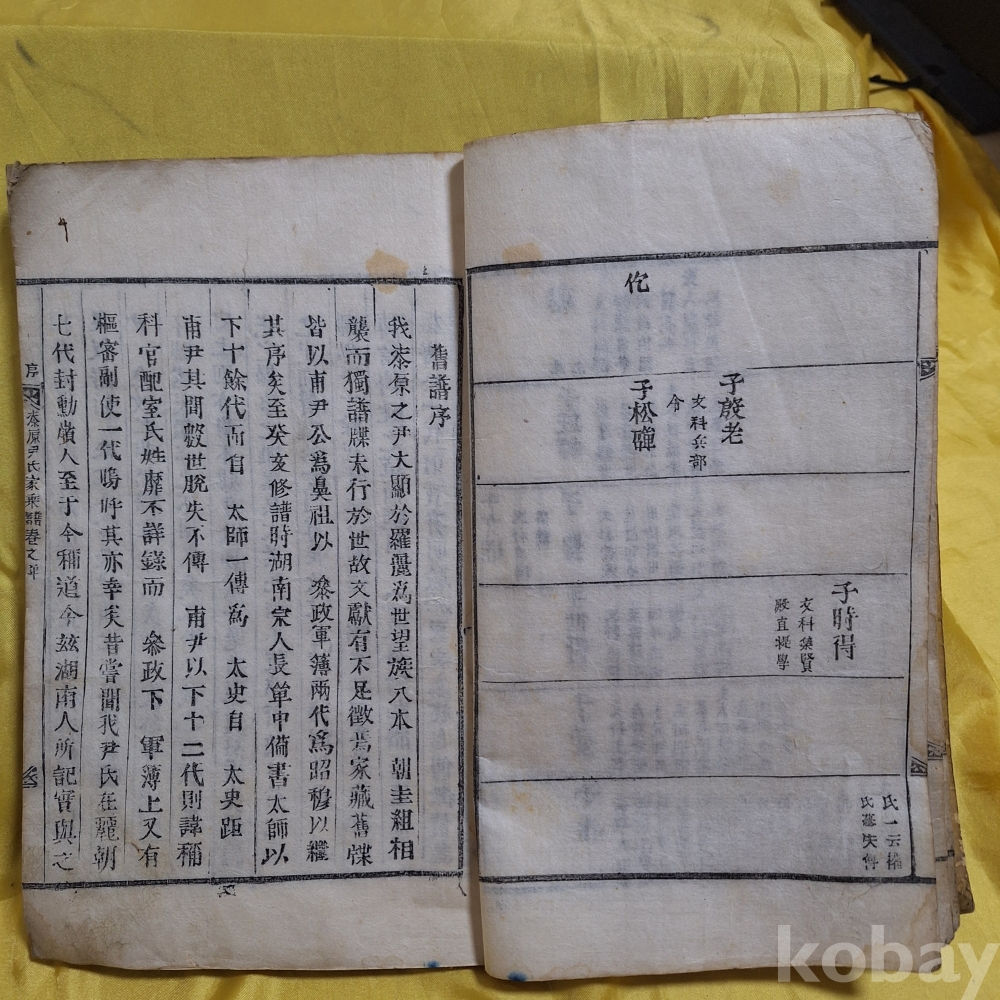 氏一云楊
氏墓失傳
子時得
文科集賢
殿直提學
子殷老
文科兵部
令
子松磾
佗
舊譜序
我漆原之尹大顯於羅麗爲世望族入本 朝圭組相
襲而獨譜牒未行於世故文獻有不足徵焉家藏舊牒
皆以甫尹公爲鼻祖以 叅政軍簿兩代爲昭穆以繼
其序矣至癸亥修譜時湖南宗人長單中備書太師以
下十餘代而自 太師一傳爲 太史自 太史距
甫尹其間數世脫失不傳 甫尹以下十二代則諱稱
科官配室氏姓靡不詳錄而 叅政下 軍薄上又有
樞審副使一代嗚呼其亦幸矣昔嘗聞我尹氏在麗朝
七代封勳嶺人至于今稱道今玆湖南人所記實與之
序
漆原尹氏家乘譜卷之
kobay